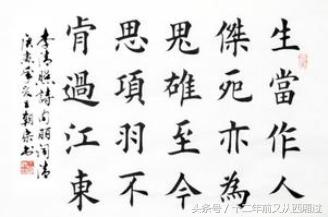 生當作人
傑死亦為
鬼雄至今
思項羽不
肯過江東
李清照詩句丽词清
头条号 / 十二年前又从西厢过